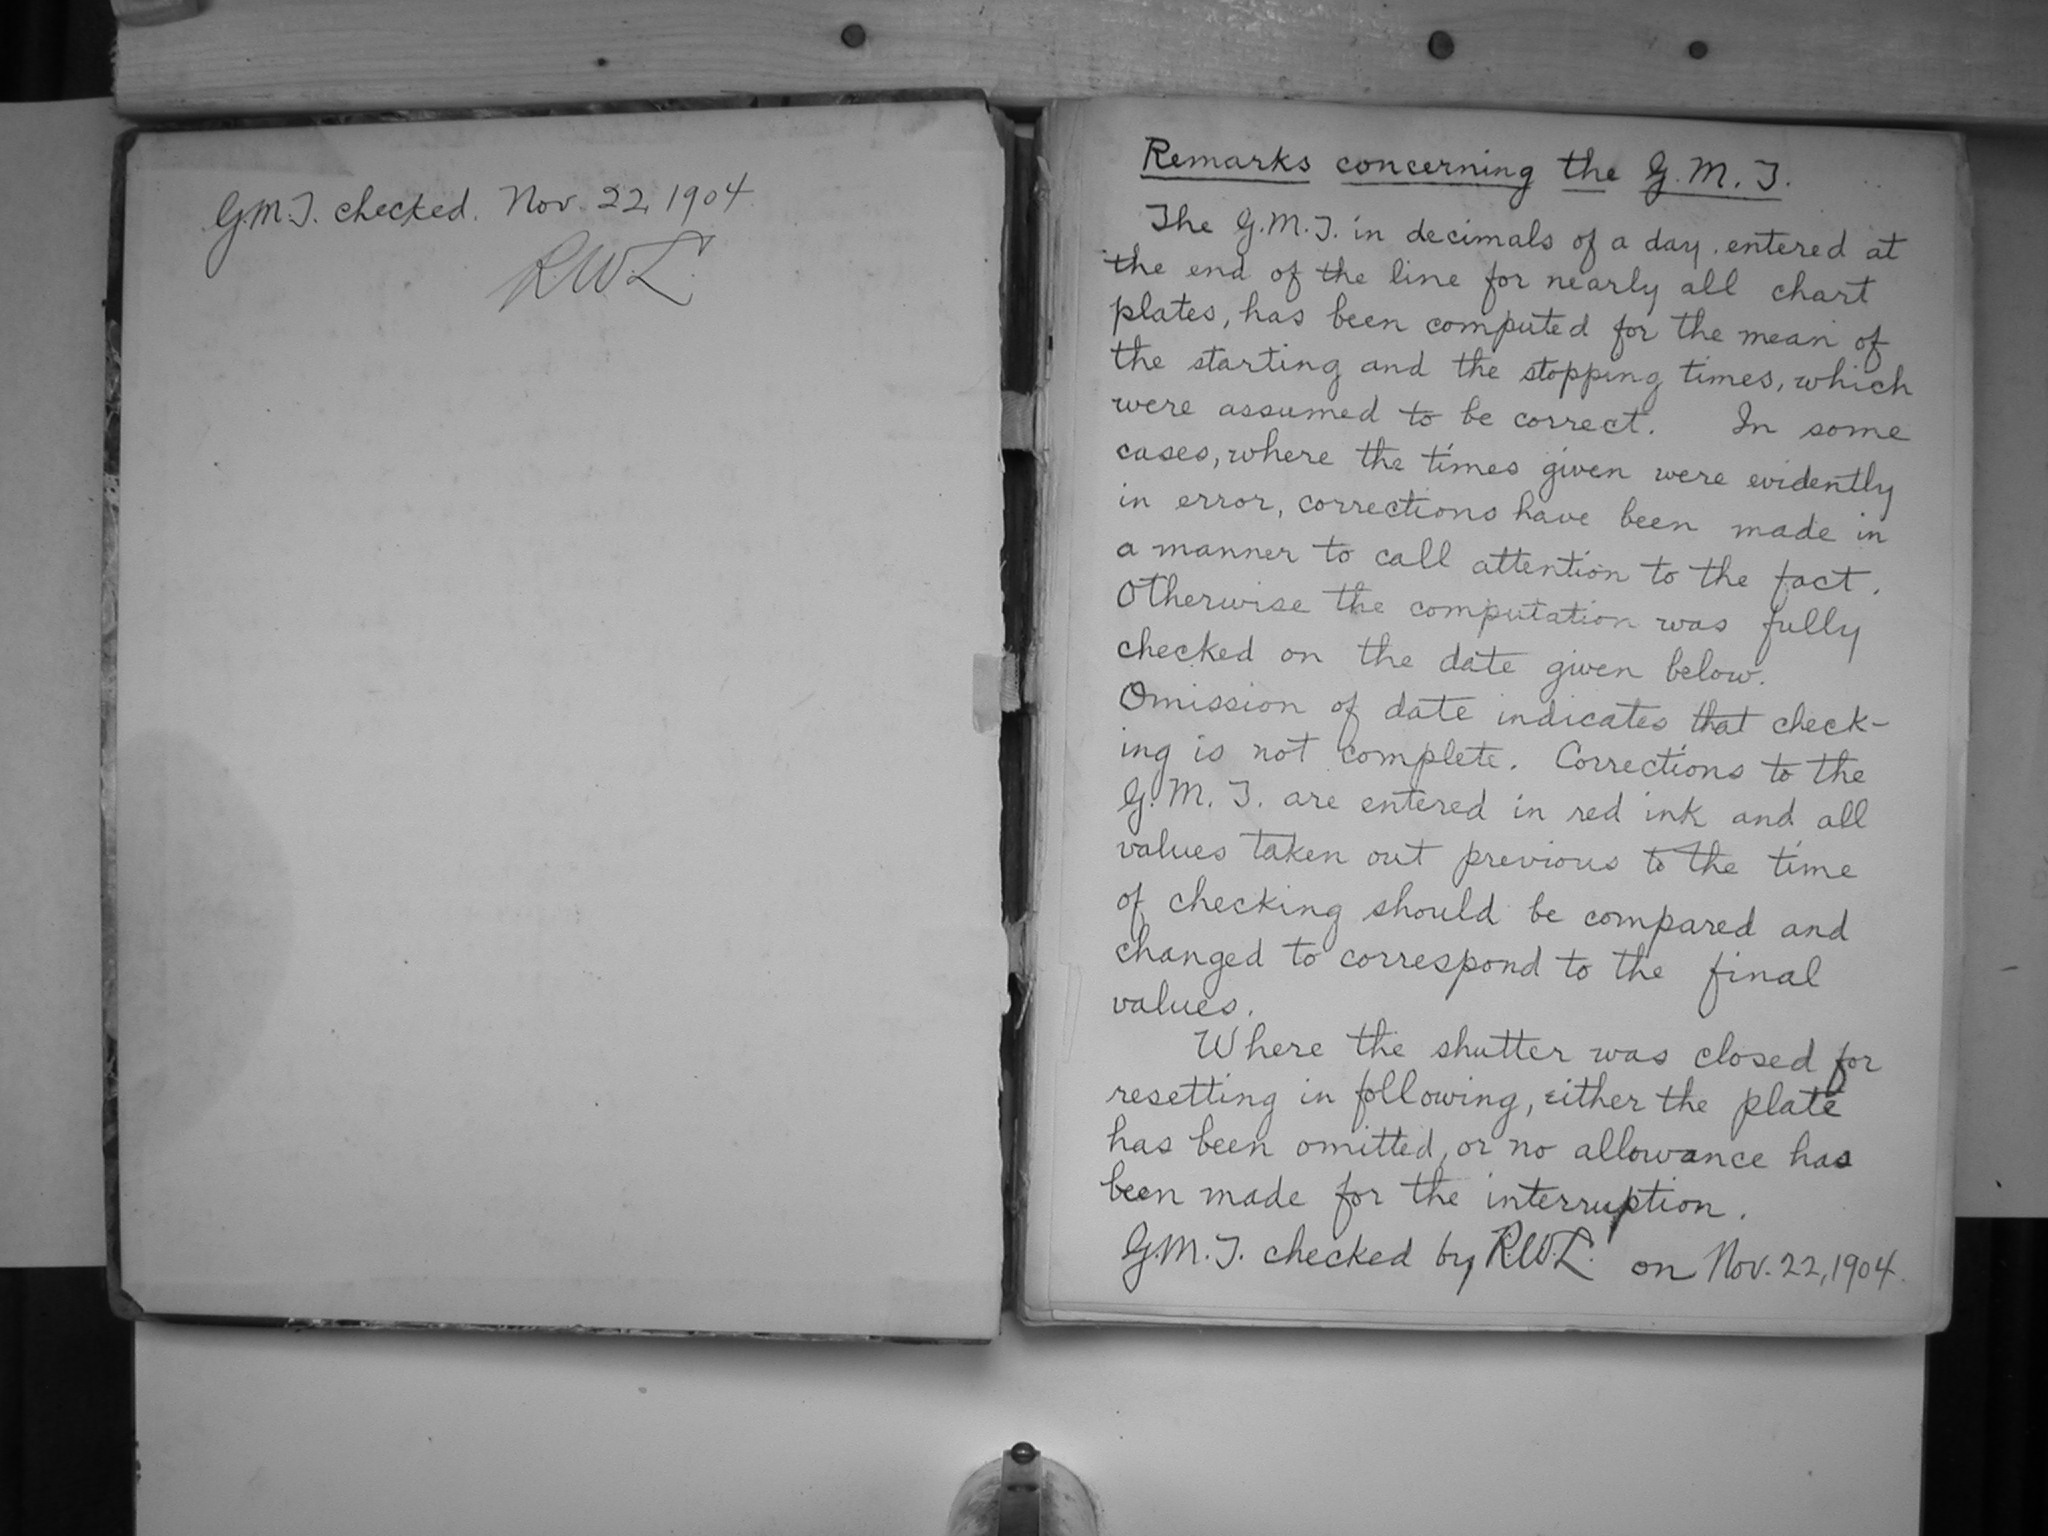 G.M.T. checked. Nov. 22, 1904.
RWL.
Remarks concerning the G.M.T.
The G.M.T. in decimals of a day, entered at
the end of the line for nearly all chart
plates, has been computed for the mean of
the starting and the stopping times, which
were assumed to be correct. In some
cases, where the times given were evidently
in error, corrections have been made in
a manner to call attention to the fact.
Otherwise the computation was fully
checked on the date given below.
Omission of date indicates that check-
ing is not complete. Corrections to the
G.M.T. are entered in red ink and all
values taken out previous to the time
of checking should be compared and
changed to correspond to the final
values.
Where the shutter was closed for
resetting in following, either the plate
has been omitted, or no allowance has
been made for the interruption.
G.M.T. checked by R.W.L. on Nov. 22, 1904.